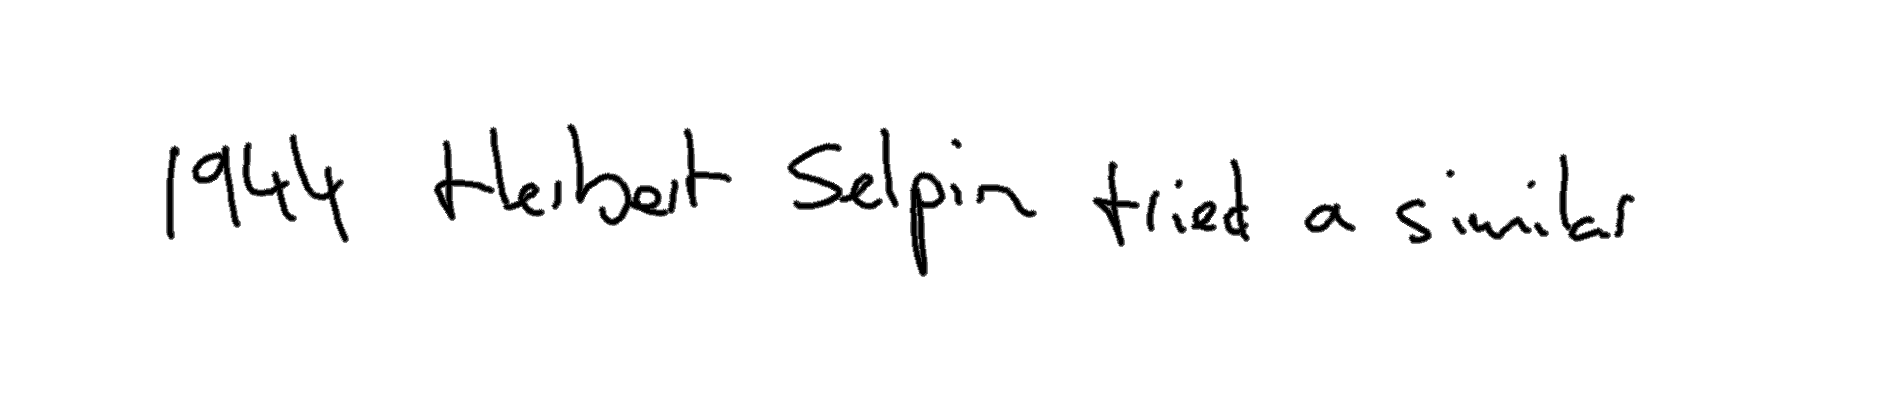 1944 Herbert Selpin tried a similar